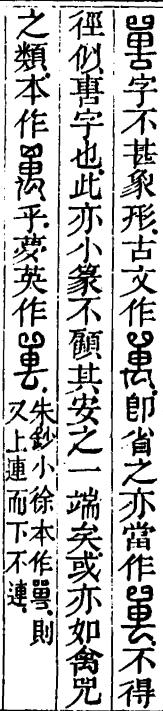 字不甚象形古文作 即省之亦當作 不得
徑似 字也此亦小篆不顧其安之一端矣或亦如禽兕
之類本作 乎夢英作 朱鈔小徐本作 則
又上連而下不連